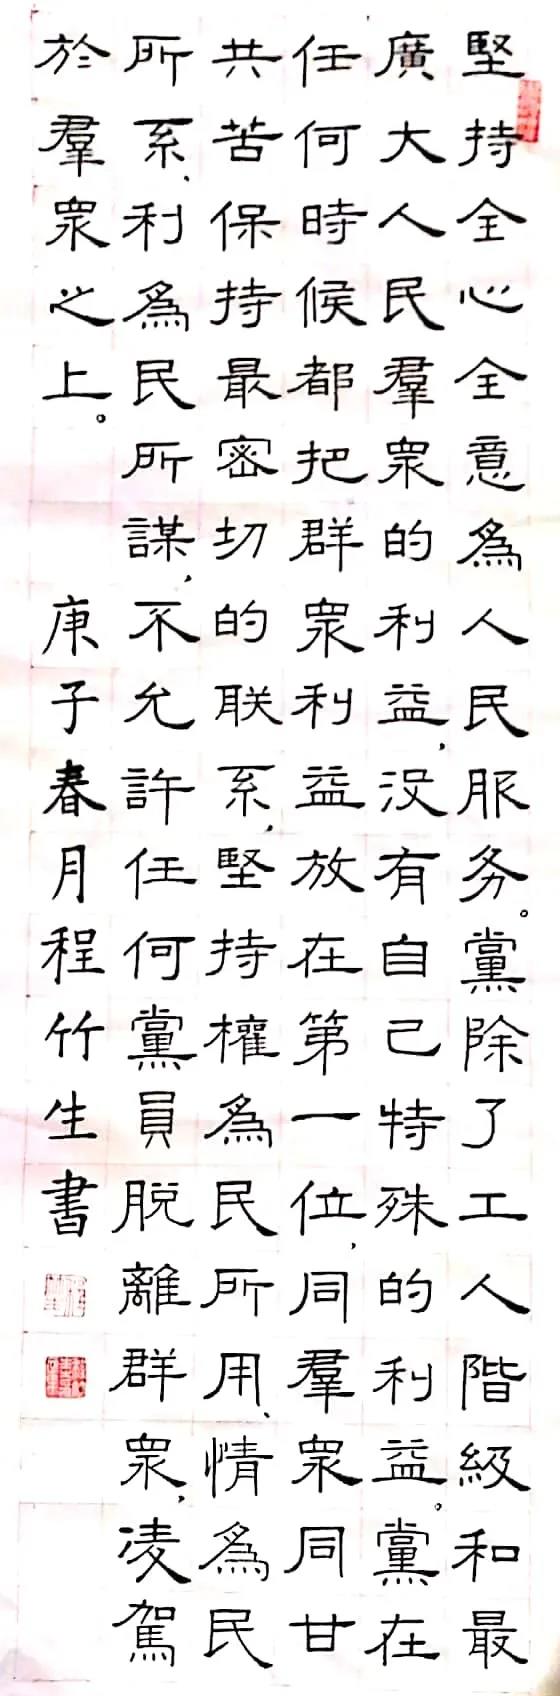 堅持全心全意為人民服务。黨除了工人階級和最
廣大人民羣衆的利益，没有自己特殊的利益。黨在
任何時候都把群衆利益放在第一位，同羣衆同甘
共苦保持最密切的联系，堅持權為民所用、情為民
所系、利為民所謀，不允許任何黨員脱離群衆，凌駕
於羣衆之上。庚子春月程竹生書